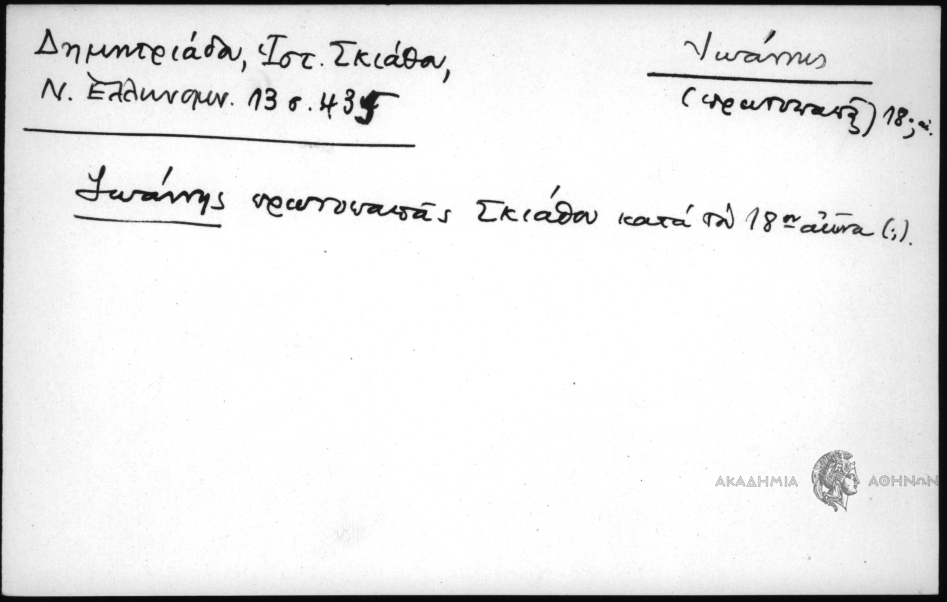 Δημητριάδου, Ἱστ. Σκιάθου,
Ν. Ἑλληνομν. 13 σ. 435
Ἰωάννης
(πρωτοπαπᾶς) 18;αἰ.
Ἰωάννης πρωτοπαπᾶς Σκιάθου κατά τόν 18ον αἰῶνα (;).
ΑΚΑΔΗΜΙΑ ΑΘΗΝΩΝ